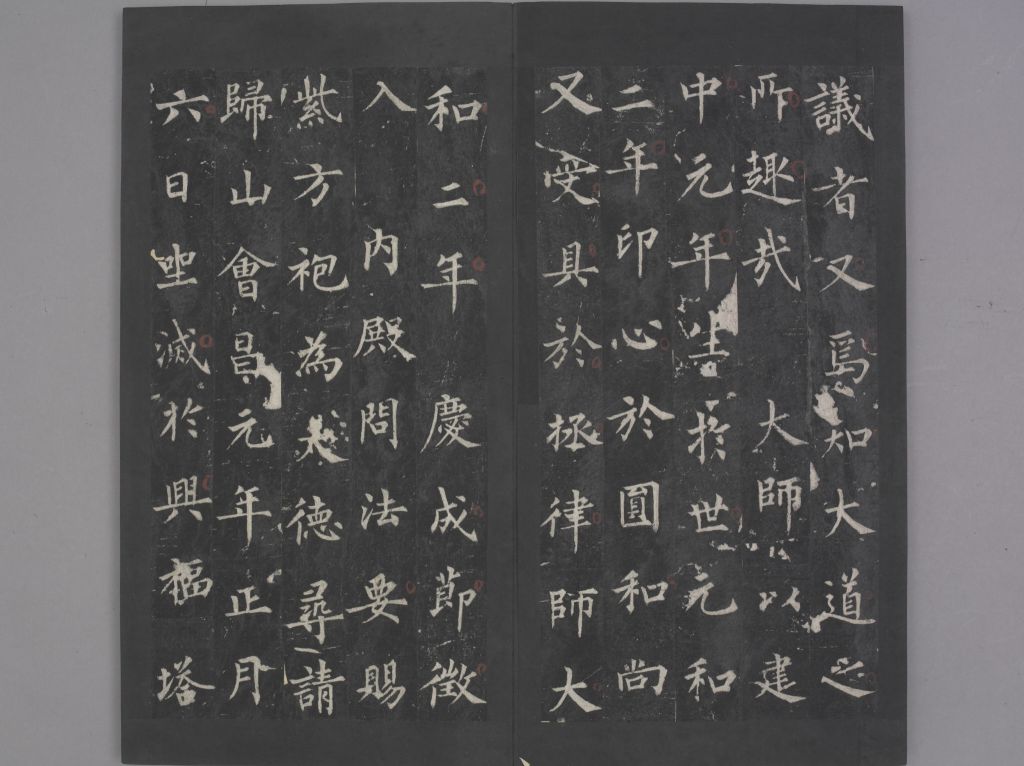 議者又焉知大道之
所趣哉大師以建
中元年生於世元和
二年印心於圓和尚
又受具於拯律師大
和二年慶成節徵
入內殿問法要賜
紫方袍為大德尋請
歸山會昌元年正月
六日坐滅於興福塔